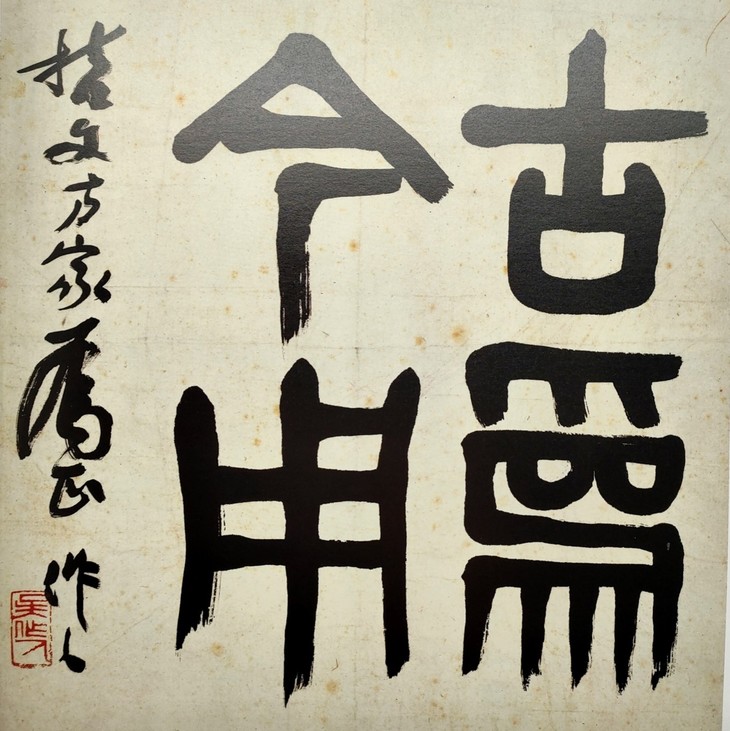 古為
今用
喆文方家属正 作人
吴作人